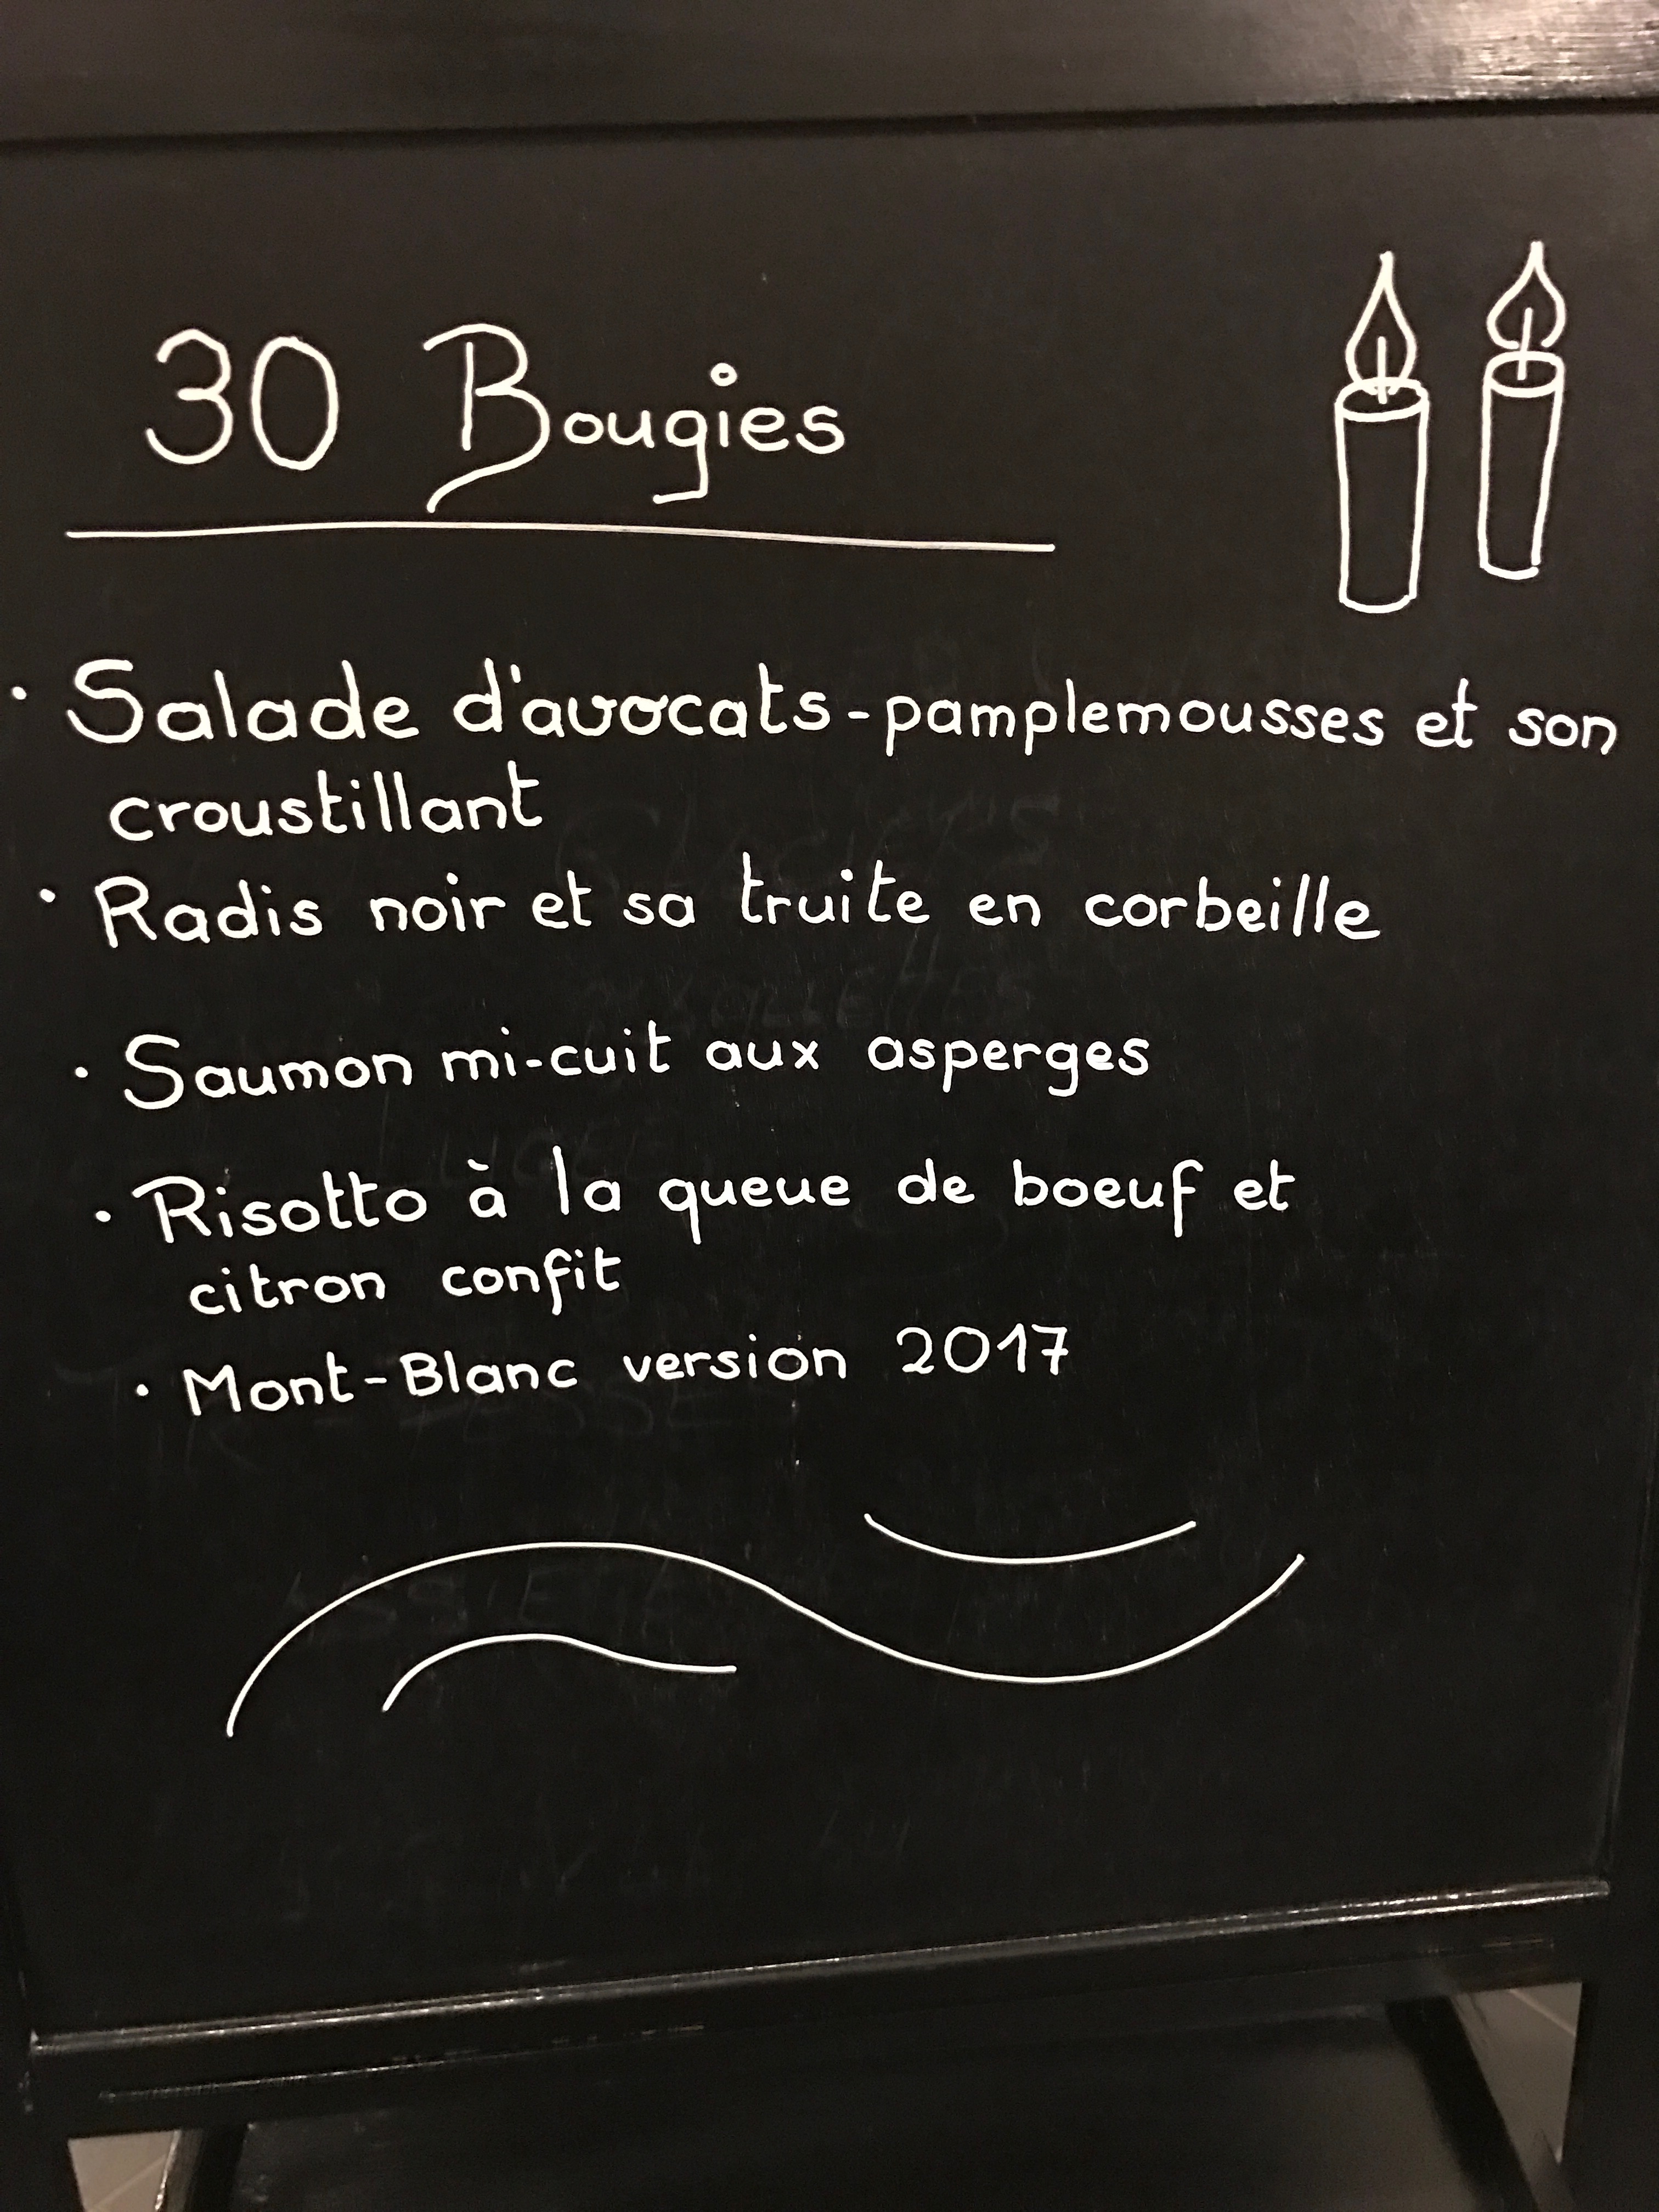 30 Bougies
· Salade d'avocats-pamplemousses et son
croustillant
· Radis noir et sa truite en corbeille
· Saumon mi-cuit aux asperges
· Risotto à la queue de boeuf et
citron confit
· Mont-Blanc version 2017